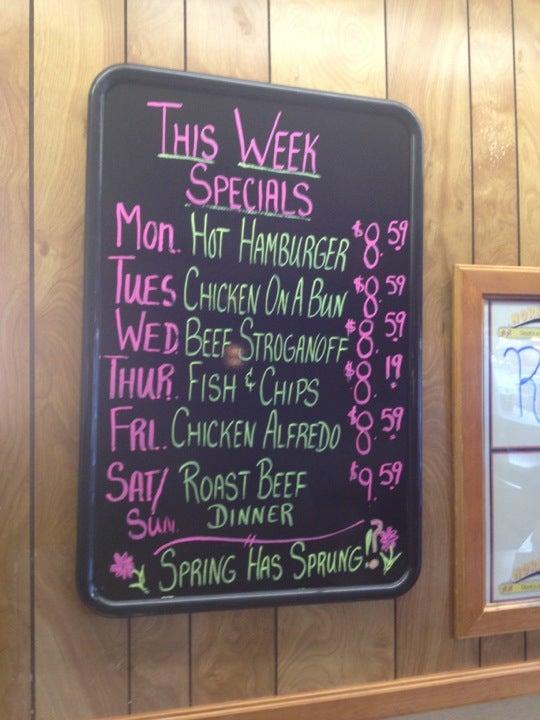 THIS WEEK
SPECIALS
MON. HOT HAMBURGER $8.59
TUES CHICKEN ON A BUN $8.59
WED. BEEF STROGANOFF $8.59
THUR. FISH & CHIPS $8.19
FRI.. CHICKEN ALFREDO $8.59
SAT/ ROAST BEEF $9.59
SUN. DINNER
SPRING HAS SPRUNG!?